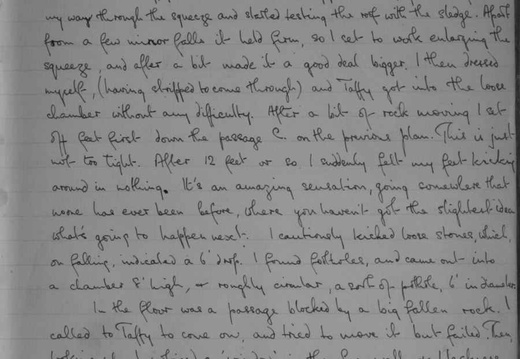 my way through the squeeze and started testing the roof with the sledge. Apart
from a few minor falls it held firm, so I set to work enlarging the
squeeze, and after a bit made it a good deal bigger. I then dressed
myself, (having stripped to come through) and Taffy got into the loose
chamber without any difficulty. After a bit of rock moving I set
off feet first down the passage C. on the previous plan. This is just
not too tight. After 12 feet or so I suddenly felt my feet kicking
around in nothing. It's an amazing sensation, going somewhere that
none has ever been before, where you haven't got the slightest idea
what's going to happen next. I cautiously kicked loose stones, which,
on falling, indicated a 6' drop. I found footholes, and came out into
a chamber 8' high, roughly circular, a sort of pothole, 6' in diameter
In the floor was a passage blocked by a big fallen rock. I
called to Taffy to come on, and tried to move it but failed. Then